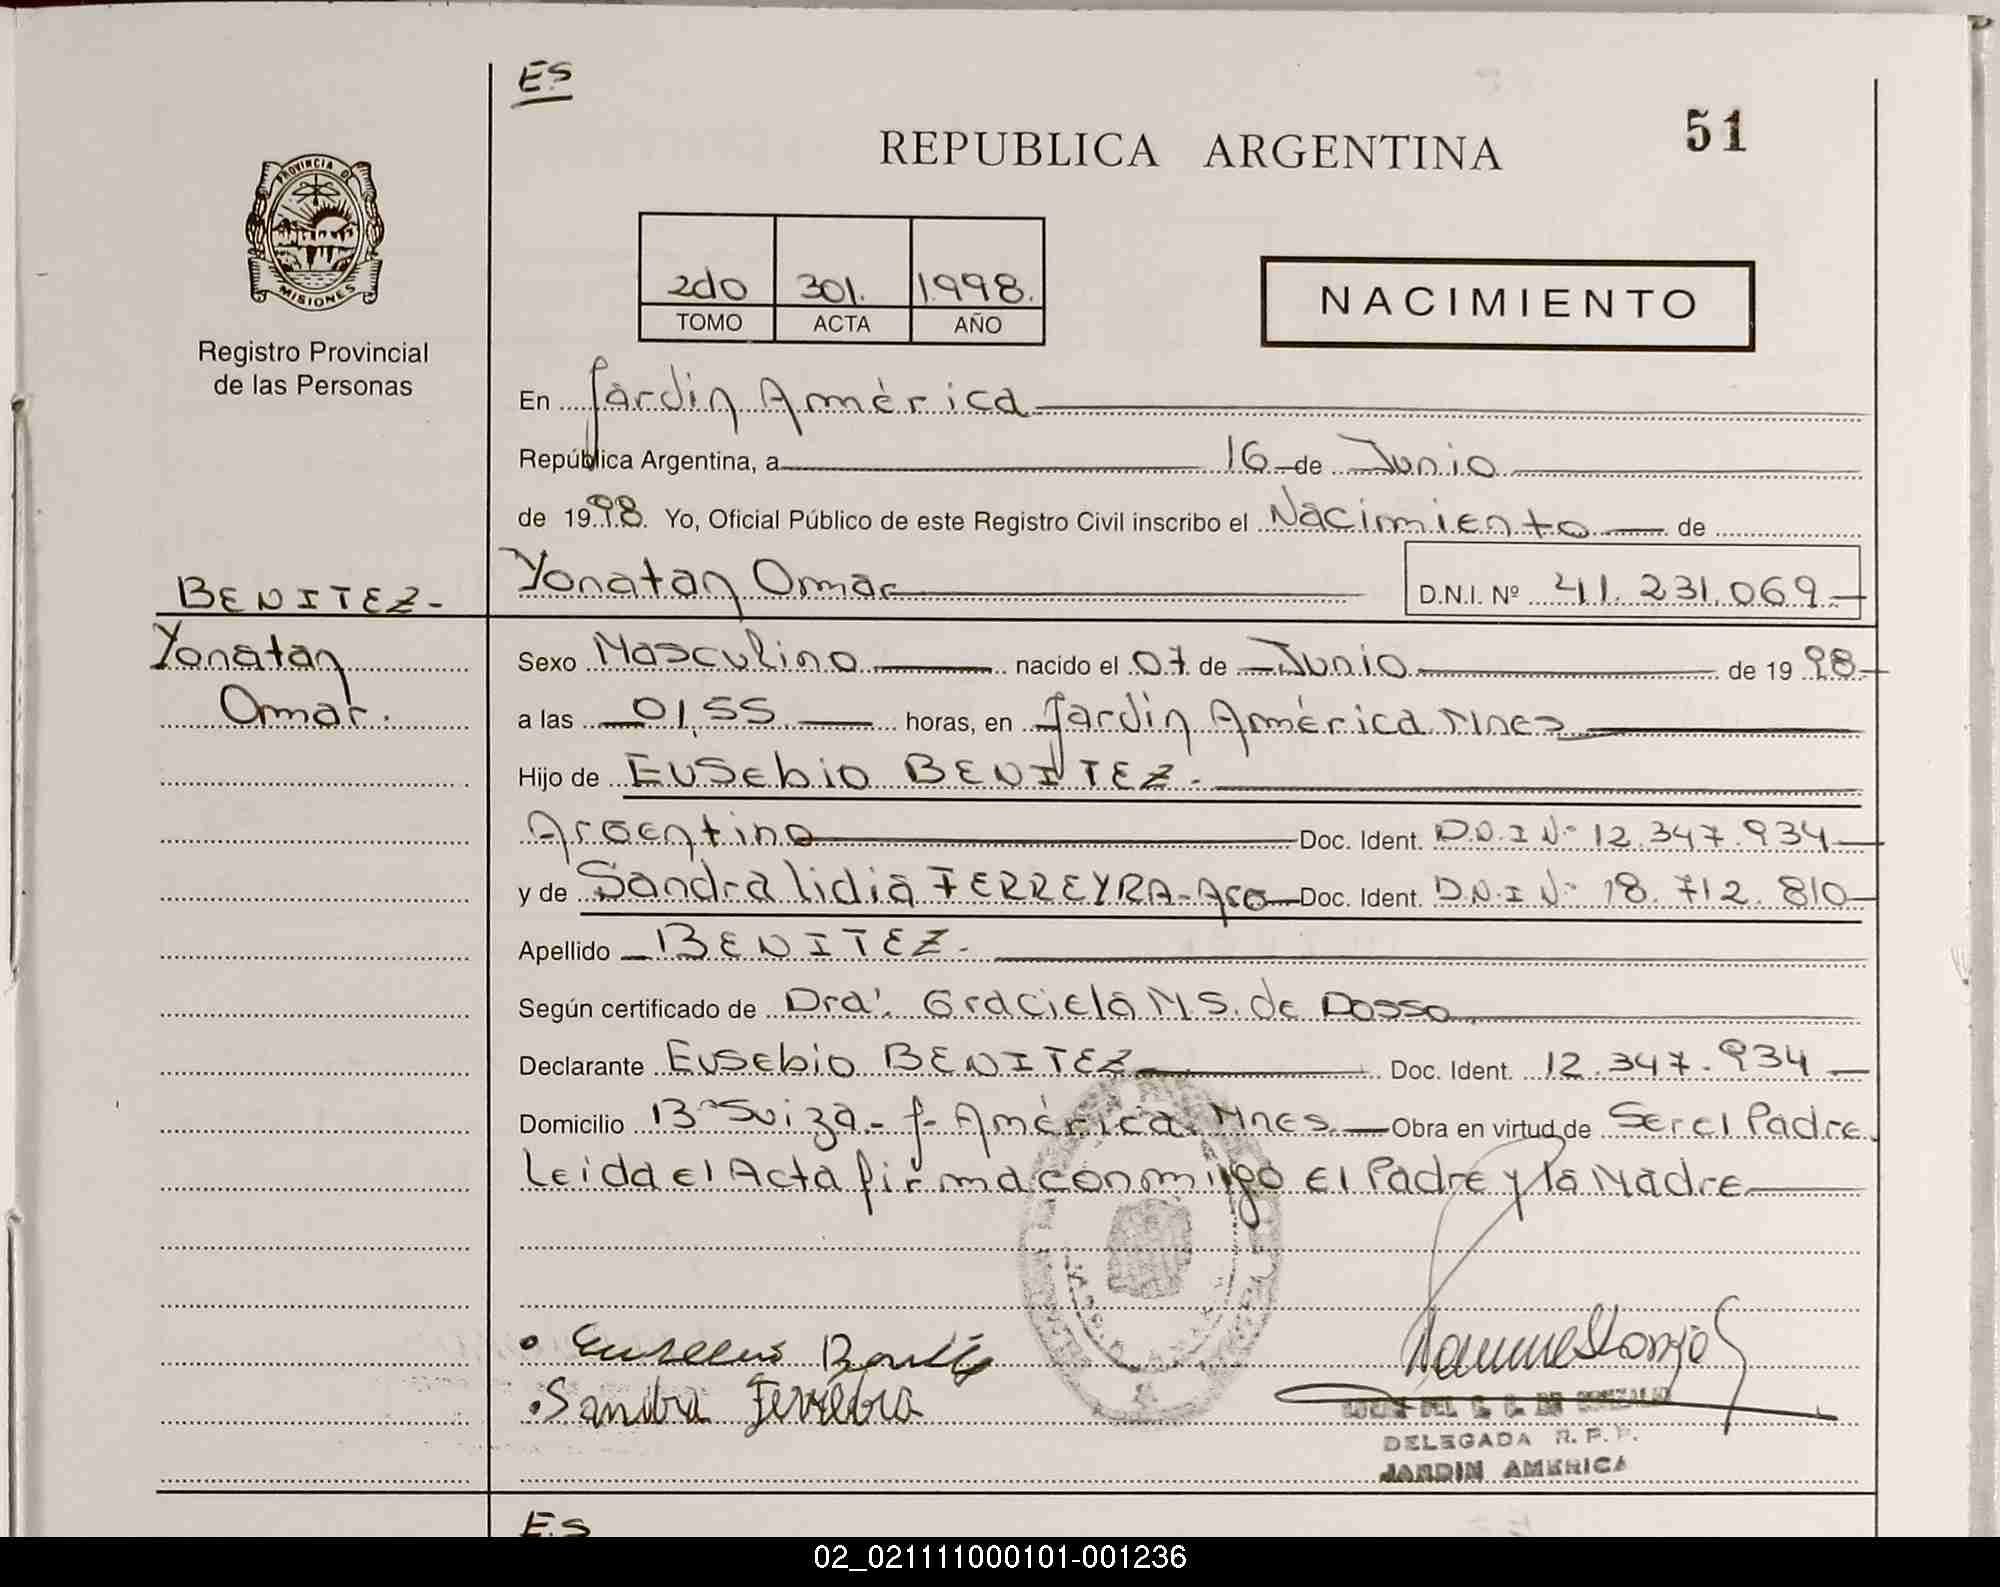 ES
51
REPUBLICA ARGENTINA
PROVINCIA D
MISIONES
Registro Provincial
de las Personas
2do 301. 1998.
TOMO ACTA AÑO
NACIMIENTO
En Jardin América
República Argentina, a 16 de Junio
de 1998. Yo, Oficial Público de este Registro Civil inscribo el Nacimiento de
Yonatan Omar D.N.I. Nº 41.231.069
BENITEZ-
Yonatan
Omar.
Sexo Masculino nacido el 07 de Junio de 1998
a las 01,55 horas, en Jardin América Mnes
Hijo de Eusebio BENITEZ.
Argentino Doc. Ident. D.N.I Nº 12.347.934
y de Sandra lidia FERREYRA-Arg Doc. Ident. D.N.I Nº 18.712.810
Apellido BENITEZ.
Según certificado de Dra. Graciela M.S. de Dosso
Declarante Eusebio BENITEZ Doc. Ident. 12.347.934
Domicilio Bº Suiza - J- América Mnes Obra en virtud de Ser el Padre
Leida el Acta firma conmigo El Padre y la Madre
Sandra Ferreyra
DELEGADA R. P. P.
JARDIN AMERICA
E.S
02_021111000101-001236